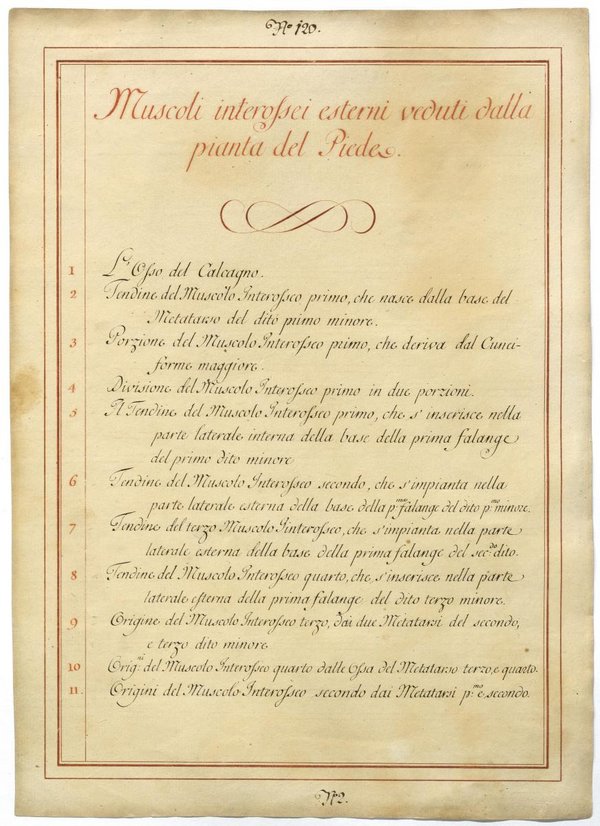 Nº 120.
Muscoli interoſsei esterni veduti dalla
pianta del Piede.
1 L'Osso del Calcagno.
2 Tendine del Muscolo Interoſseo primo, che nasce dalla base del
Metatarso del dito primo minore.
3 Porzione del Muscolo Interoſseo primo, che deriva dal Cunei-
forme maggiore.
4 Divisione del Muscolo Interoſseo primo in due porzioni.
5 Il Tendine del Muscolo Interoſseo primo, che s'inserisce nella
parte laterale interna della base della prima falange
del primo dito minore
6 Tendine del Muscolo Interoſseo secondo, che s'impianta nella
parte laterale esterna della base della p.ma falange del dito p.mo minore.
7 Tendine del terzo Muscolo Jnteroſseo, che s'impianta nella parte
laterale esterna della base della prima falange del sec.do dito.
8 Tendine del Muscolo Interoſseo quarto, che s'inserisce nella parte
laterale esterna della prima falange del dito terzo minore.
9 Origine del Muscolo Interoſseo terzo, dai due Metatarsi del secondo,
e terzo dito minore
10 Orig.ni del Muscolo Interoſseo quarto dalle Ossa del Metatarso terzo, e quarto.
11. Origini del Muscolo Interoſseo secondo dai Metatarsi p.mo e secondo.
Nº2.